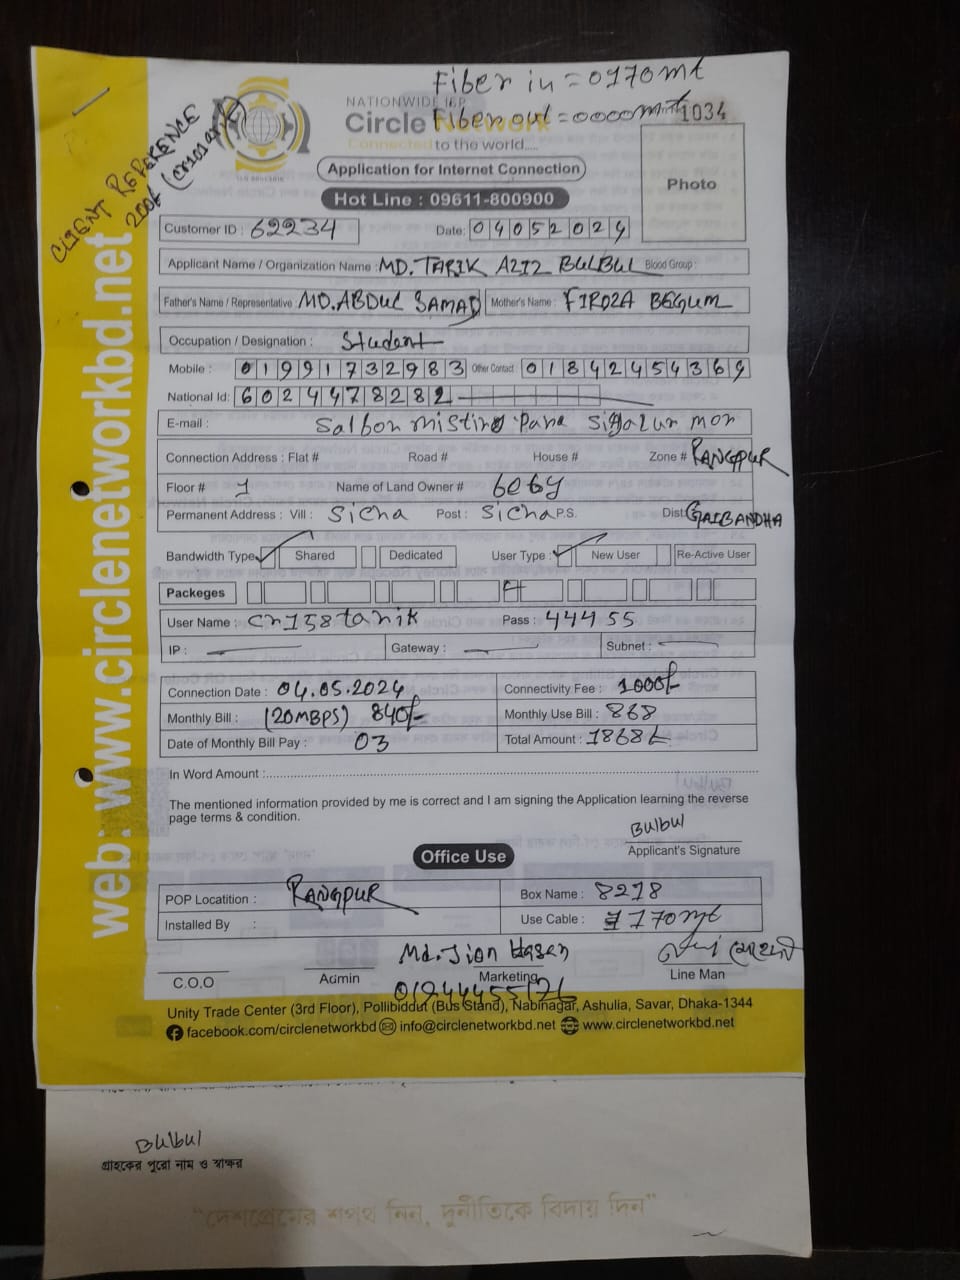 Fiber in = 0170mt
Fiber out = 0000mt
1034
CLIENT REFERENCE
NATIONWIDE ISP
Circle Network
Connected to the world.....
Application for Internet Connection
Hot Line : 09611-800900
Photo
web: www.circlenetworkbd.net
Customer ID : 62234 Date: 04052024
Applicant Name / Organization Name : MD. TARIK AZIZ BULBUL Blood Group :
Father's Name / Representative MD. ABDUL SAMAD Mother's Name : FIROZA BEGUM
Occupation / Designation : Student
Mobile : 01991732983 Other Contact 01842454369
National Id: 6024478282
E-mail : Salbon
Connection Address : Flat # Road # House # Zone # RANGPUR
Floor # 1 Name of Land Owner # beby
Permanent Address : Vill : Sicha Post : Sicha P.S. Dist: GAIBANDHA
Bandwidth Type Shared Dedicated User Type : New User Re-Active User
Packeges
User Name : cn158tarik Pass : 44455
IP : Gateway : Subnet :
Connection Date : 04.05.2024 Connectivity Fee : 1000/-
Monthly Bill : (20MBPS) 840/- Monthly Use Bill : 868
Date of Monthly Bill Pay : 03 Total Amount : 1868
In Word Amount :
The mentioned information provided by me is correct and I am signing the Application learning the reverse
page terms & condition.
Bulbul
Applicant's Signature
Office Use
POP Locatition : RANGPUR Box Name : 8218
Installed By : Use Cable : 170mt
Md. Jion Hasan
C.O.O Admin Marketing Line Man
Unity Trade Center (3rd Floor), Pollibiddut (Bus Stand), Nabinagar, Ashulia, Savar, Dhaka-1344
facebook.com/circlenetworkbd info@circlenetworkbd.net www.circlenetworkbd.net
Bulbul
গ্রাহকের পুরো নাম ও স্বাক্ষর
“দেশপ্রেমের শপথ নিন, দুর্নীতিকে বিদায় দিন”